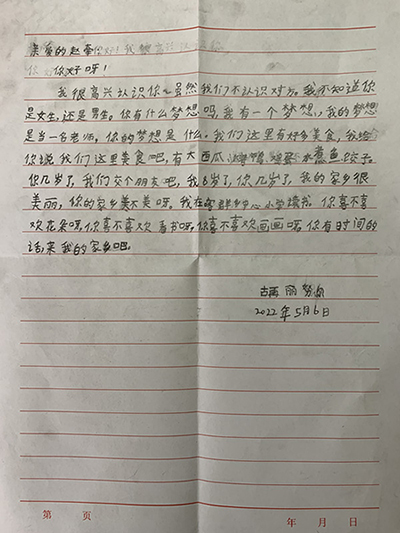 亲爱的赵
你好呀!
我很高兴认识你~虽然我们不认识对方。我不知道你
是女生,还是男生。你有什么梦想吗,我有一个梦想,我的梦想
是当一名老师。你的梦想是什么。我们这里有好多美食,我给
你说我们这里美食吧,有大西瓜 鱼 饺子
你几岁了,我们交个朋友吧,我 岁了,你几岁了,我的家乡很
美丽,你的家乡美不美呀。我在 群乡中心小学读书。你喜不喜
欢花朵呀,你喜不喜欢看书呀,你喜不喜欢画画呀,你有时间的
话,来我的家乡吧。
古再丽努尔
2022年5月6日
第 页 年 月 日